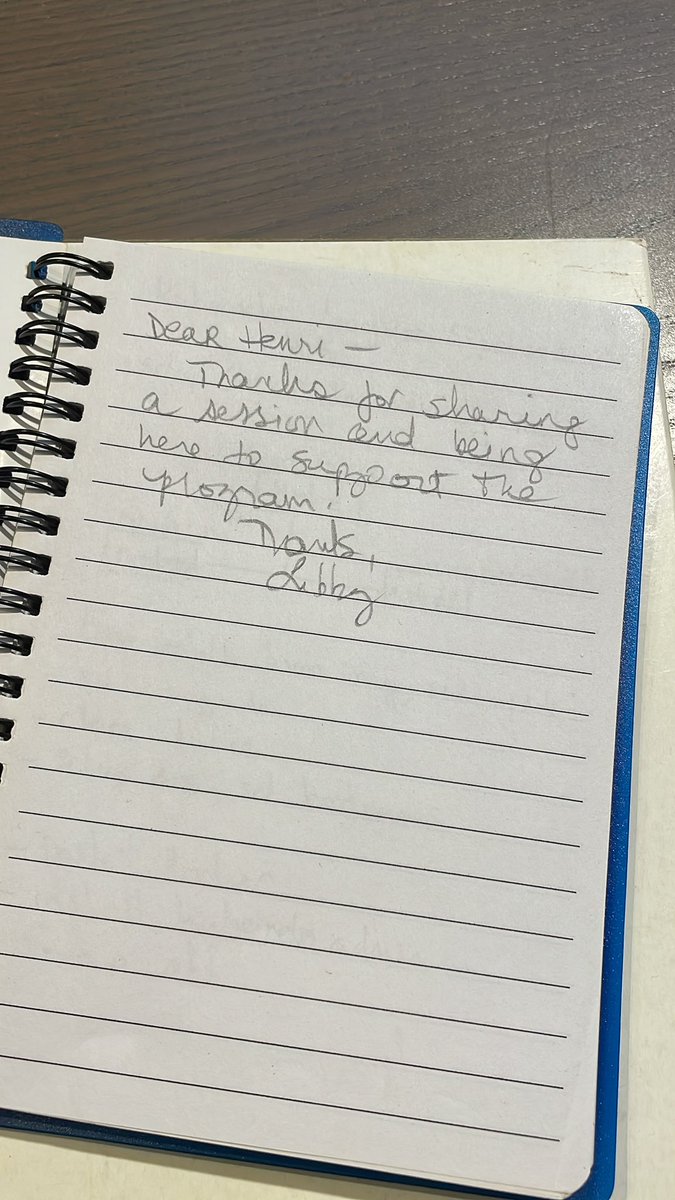 Dear Henri —
Thanks for sharing
a session and being
here to support the
program!
Thanks,
Libby